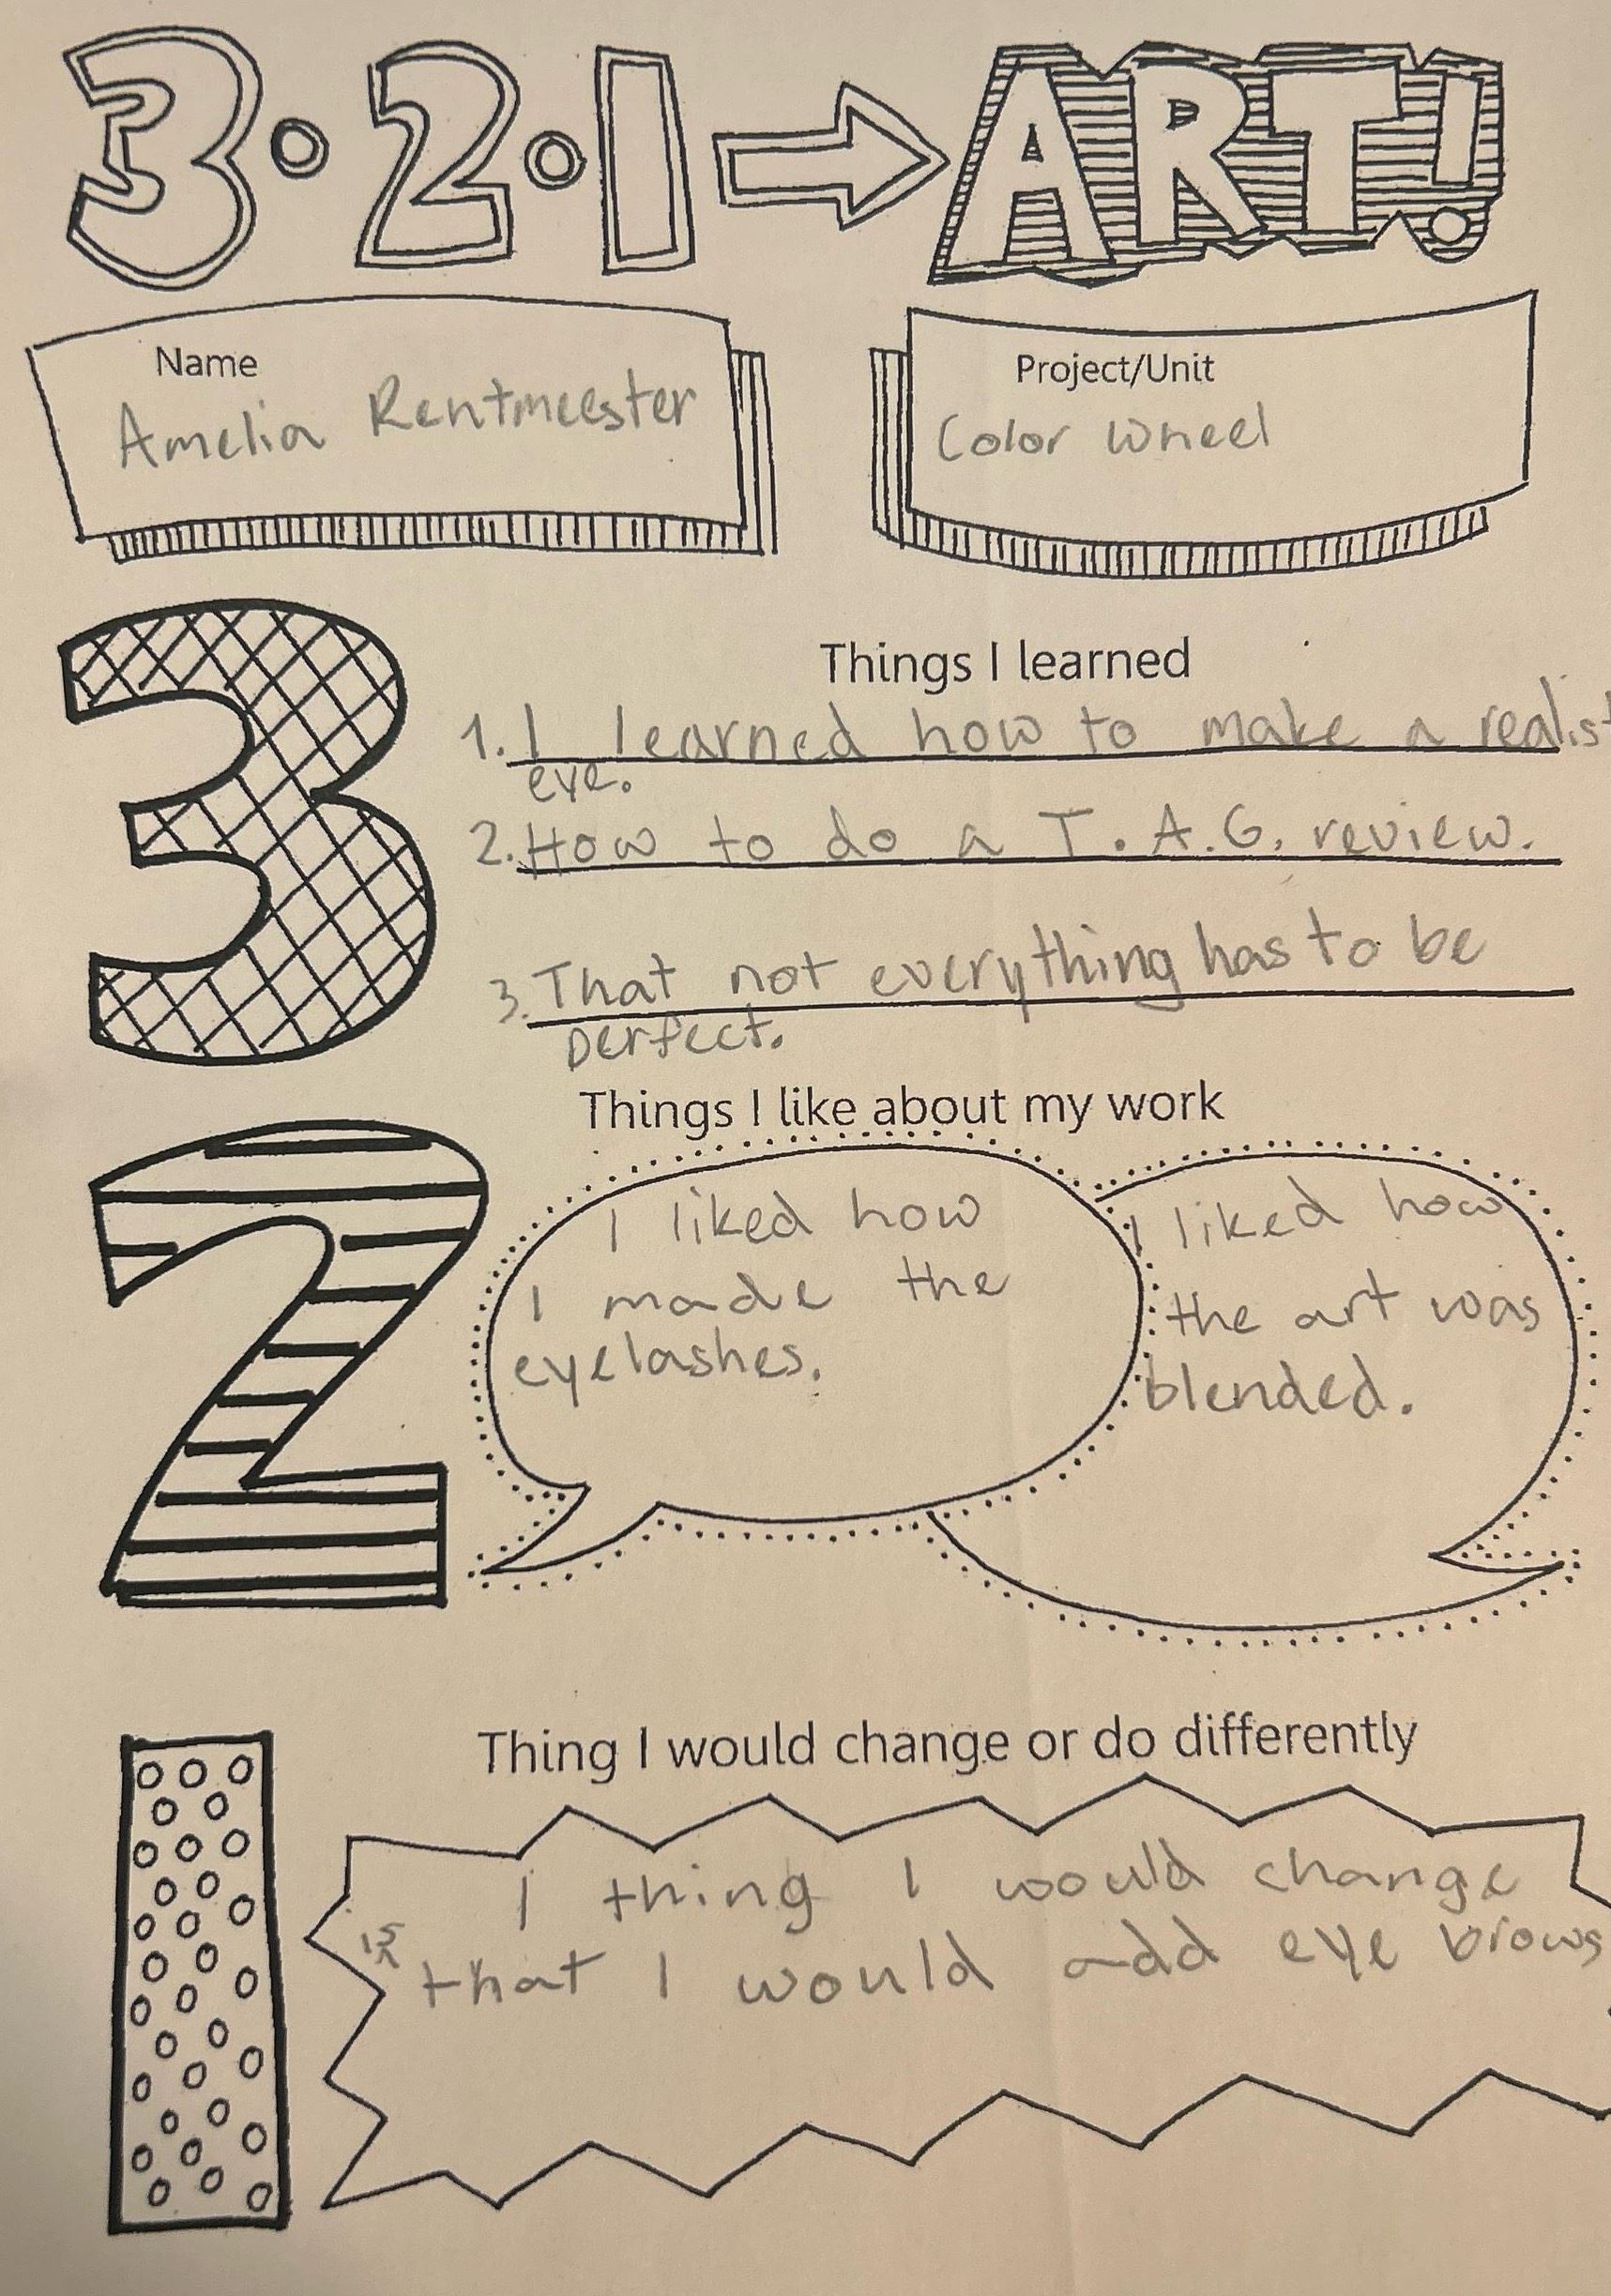 3·2·1→ART!
Name
Amelia Rentmeester
Project/Unit
Color Wheel
3
Things I learned
1. I learned how to make a realist
eye.
2. How to do a T.A.G. review.
3. That not everything has to be
perfect.
2
Things I like about my work
I liked how
I made the
eyelashes.
I liked how
the art was
blended.
1
Thing I would change or do differently
1 thing I would change
is that I would add eye brows